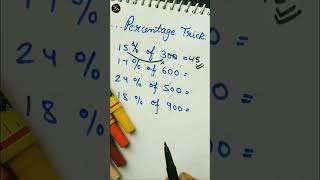 ...Percentage Trick
15% of 300 = 45
17% of 600 =
24% of 500 =
18% of 900 =